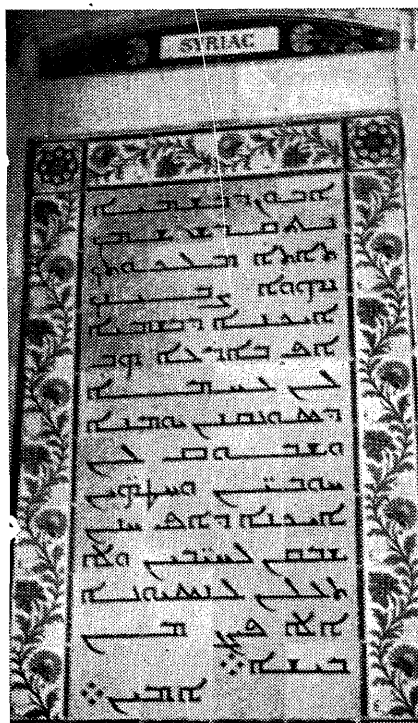 SYRIAC
ܐܒܘܢ ܕܒܫܡܝܐ
ܢܬܩܕܫ ܫܡܟ
ܬܐܬܐ ܡܠܟܘܬܟ
ܢܗܘܐ ܨܒܝܢܟ
ܐܝܟܢܐ ܕܒܫܡܝܐ
ܐܦ ܒܐܪܥܐ ܗܒ
ܠܢ ܠܚܡܐ
ܕܣܘܢܩܢܢ ܝܘܡܢܐ
ܘܫܒܘܩ ܠܢ
ܚܘܒܝ̈ܢ ܘܚܛܗ̈ܝܢ
ܐܝܟܢܐ ܕܐܦ ܚܢܢ
ܫܒܩܢ ܠܚܝ̈ܒܝܢ ܘܠܐ
ܬܥܠܢ ܠܢܣܝܘܢܐ
ܐܠܐ ܦܨܢ ܡܢ
ܒܝܫܐ
ܐܡܝܢ